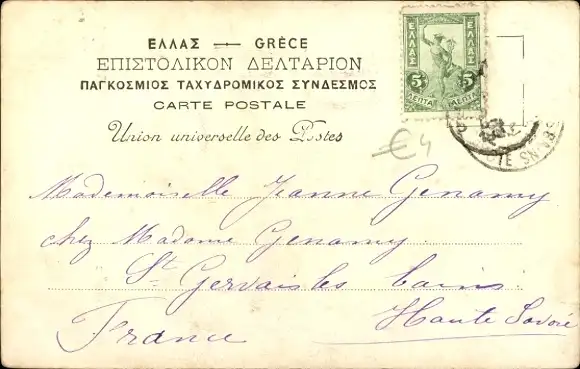 ΕΛΛΑΣ — GRÈCE
ΕΠΙΣΤΟΛΙΚΟΝ ΔΕΛΤΑΡΙΟΝ
ΠΑΓΚΟΣΜΙΟΣ ΤΑΧΥΔΡΟΜΙΚΟΣ ΣΥΝΔΕΣΜΟΣ
CARTE POSTALE
Union universelle des Postes
ΕΛΛΑΣ ΕΛΛΑΣ
5 5
ΛΕΠΤΑ ΛΕΠΤΑ
€4
Mademoiselle Jeanne Genamy
chez Madame Genamy
St Gervais les bains
Haute Savoie
France